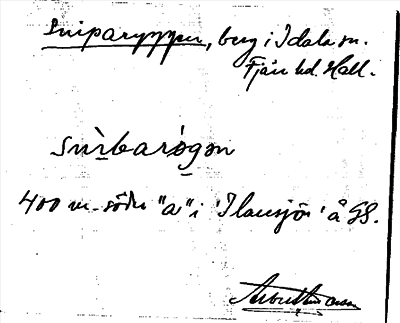 Sniparyggen, berg i Idala sn.
Fjäre hd. Hall.
snìbarógən
400 m söder "a" i 'Ilansjö' å GS.